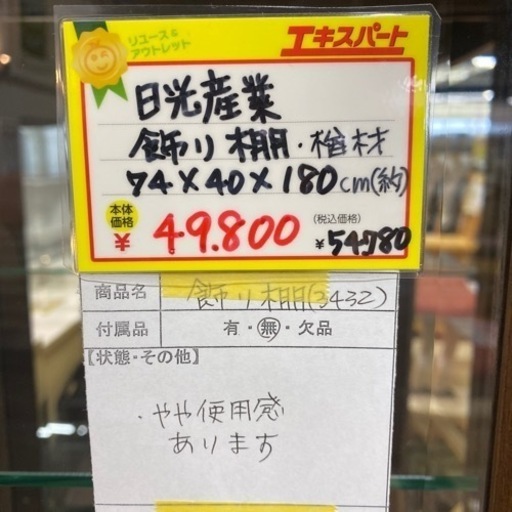 リユース&
アウトレット
エキスパート
日光産業
飾り棚・楢材
74×40×180cm(約)
本体
価格
¥49.800
(税込価格)
¥54780
商品名 飾り棚(3432)
付属品 有・無・欠品
【状態・その他】
・やや使用感
あります